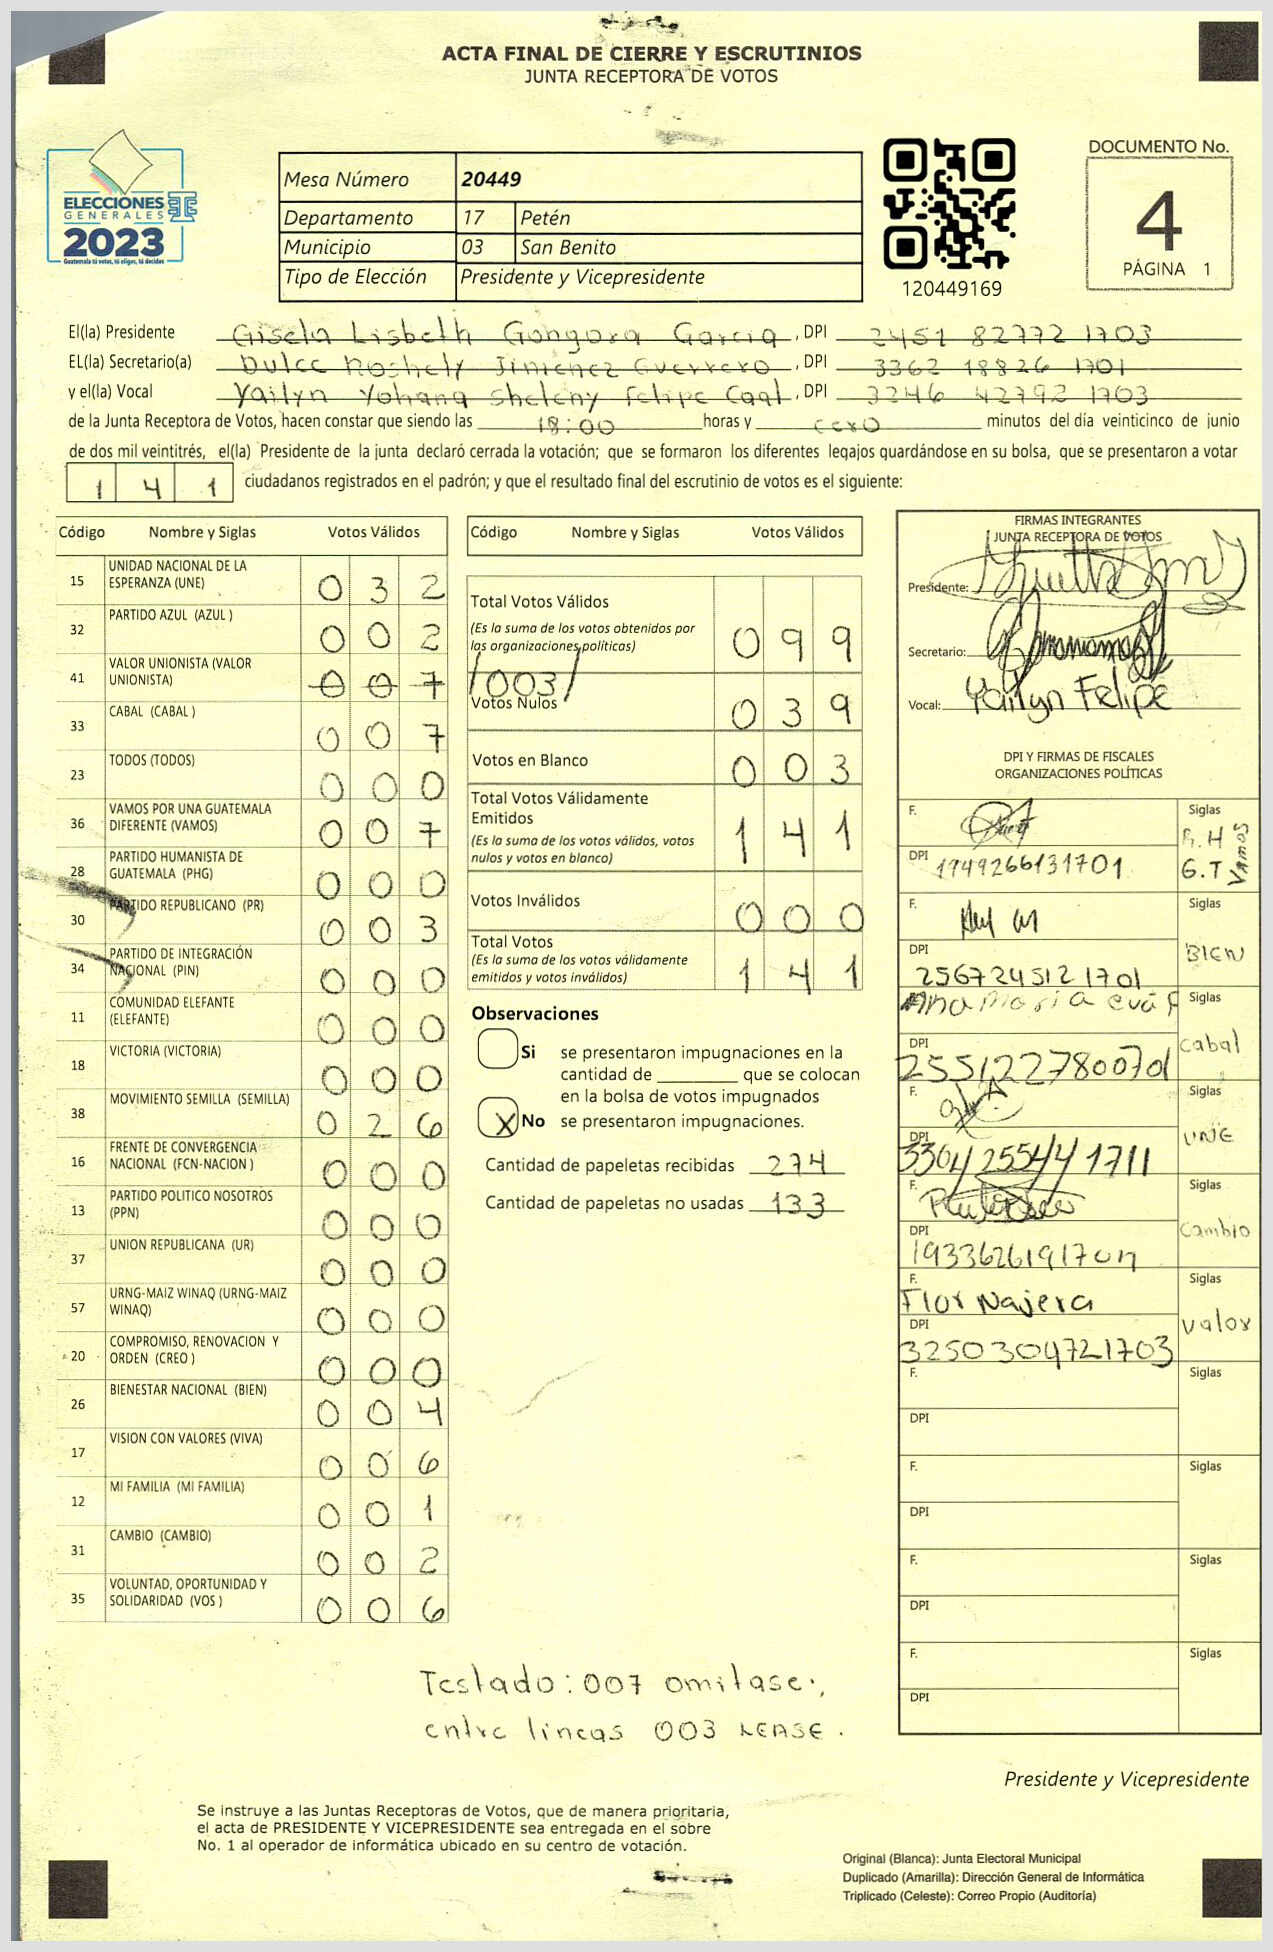 ACTA FINAL DE CIERRE Y ESCRUTINIOS
JUNTA RECEPTORA DE VOTOS
ELECCIONES
GENERALES
2023
Guatemala tú votas, tú eliges, tú decides
Mesa Número 20449
Departamento 17 Petén
Municipio 03 San Benito
Tipo de Elección Presidente y Vicepresidente
120449169
DOCUMENTO No.
4
PÁGINA 1
El(la) Presidente Gisela Lisbeth Gongora Garcia, DPI 2451 82772 1703
EL(la) Secretario(a) Dulce Roshely Jimenez Guerrero, DPI 3362 18826 1701
y el(la) Vocal Yailyn Yohana Sheleny Felipe Caal, DPI 3246 42792 1703
de la Junta Receptora de Votos, hacen constar que siendo las 18:00 horas y cero minutos del día veinticinco de junio
de dos mil veintitrés, el(la) Presidente de la junta declaró cerrada la votación; que se formaron los diferentes legajos guardándose en su bolsa, que se presentaron a votar
1 4 1 ciudadanos registrados en el padrón; y que el resultado final del escrutinio de votos es el siguiente:
Código Nombre y Siglas Votos Válidos
15 UNIDAD NACIONAL DE LA ESPERANZA (UNE) 0 3 2
32 PARTIDO AZUL (AZUL ) 0 0 2
41 VALOR UNIONISTA (VALOR UNIONISTA) 0 0 7 /003/
33 CABAL (CABAL ) 0 0 7
23 TODOS (TODOS) 0 0 0
36 VAMOS POR UNA GUATEMALA DIFERENTE (VAMOS) 0 0 7
28 PARTIDO HUMANISTA DE GUATEMALA (PHG) 0 0 0
30 PARTIDO REPUBLICANO (PR) 0 0 3
34 PARTIDO DE INTEGRACIÓN NACIONAL (PIN) 0 0 0
11 COMUNIDAD ELEFANTE (ELEFANTE) 0 0 0
18 VICTORIA (VICTORIA) 0 0 0
38 MOVIMIENTO SEMILLA (SEMILLA) 0 2 6
16 FRENTE DE CONVERGENCIA NACIONAL (FCN-NACION ) 0 0 0
13 PARTIDO POLITICO NOSOTROS (PPN) 0 0 0
37 UNION REPUBLICANA (UR) 0 0 0
57 URNG-MAIZ WINAQ (URNG-MAIZ WINAQ) 0 0 0
20 COMPROMISO, RENOVACION Y ORDEN (CREO ) 0 0 0
26 BIENESTAR NACIONAL (BIEN) 0 0 4
17 VISION CON VALORES (VIVA) 0 0 6
12 MI FAMILIA (MI FAMILIA) 0 0 1
31 CAMBIO (CAMBIO) 0 0 2
35 VOLUNTAD, OPORTUNIDAD Y SOLIDARIDAD (VOS ) 0 0 6
Código Nombre y Siglas Votos Válidos
Total Votos Válidos 0 9 9
(Es la suma de los votos obtenidos por
las organizaciones políticas)
Votos Nulos 0 3 9
Votos en Blanco 0 0 3
Total Votos Válidamente
Emitidos 1 4 1
(Es la suma de los votos válidos, votos
nulos y votos en blanco)
Votos Inválidos 0 0 0
Total Votos 1 4 1
(Es la suma de los votos válidamente
emitidos y votos inválidos)
Observaciones
Si se presentaron impugnaciones en la
cantidad de ________ que se colocan
en la bolsa de votos impugnados
X No se presentaron impugnaciones.
Cantidad de papeletas recibidas 274
Cantidad de papeletas no usadas 133
FIRMAS INTEGRANTES
JUNTA RECEPTORA DE VOTOS
Presidente:
Secretario:
Vocal: Yailyn Felipe
DPI Y FIRMAS DE FISCALES
ORGANIZACIONES POLÍTICAS
F. Siglas
DPI 1949266131701 G.T Vamos
F. Siglas
DPI 2567245121701 BIEN
F. Ana Maria Siglas
DPI 2551227800701 Cabal
F. Siglas
DPI 3304255441711 UNE
F. Siglas
DPI Cambio
F. Flor Najera Siglas
DPI 3250304721703 Valor
F. Siglas
DPI
F. Siglas
DPI
F. Siglas
DPI
F. Siglas
DPI
Testado: 007 omitase.,
entre lineas 003 LEASE.
Presidente y Vicepresidente
Se instruye a las Juntas Receptoras de Votos, que de manera prioritaria,
el acta de PRESIDENTE Y VICEPRESIDENTE sea entregada en el sobre
No. 1 al operador de informática ubicado en su centro de votación.
Original (Blanca): Junta Electoral Municipal
Duplicado (Amarilla): Dirección General de Informática
Triplicado (Celeste): Correo Propio (Auditoría)